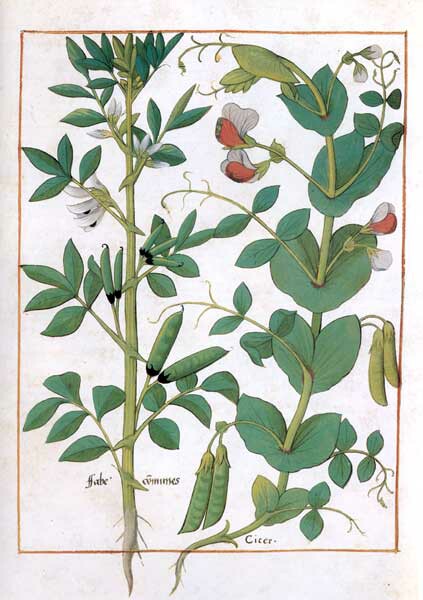 ffabe cõmunes
Cicer.